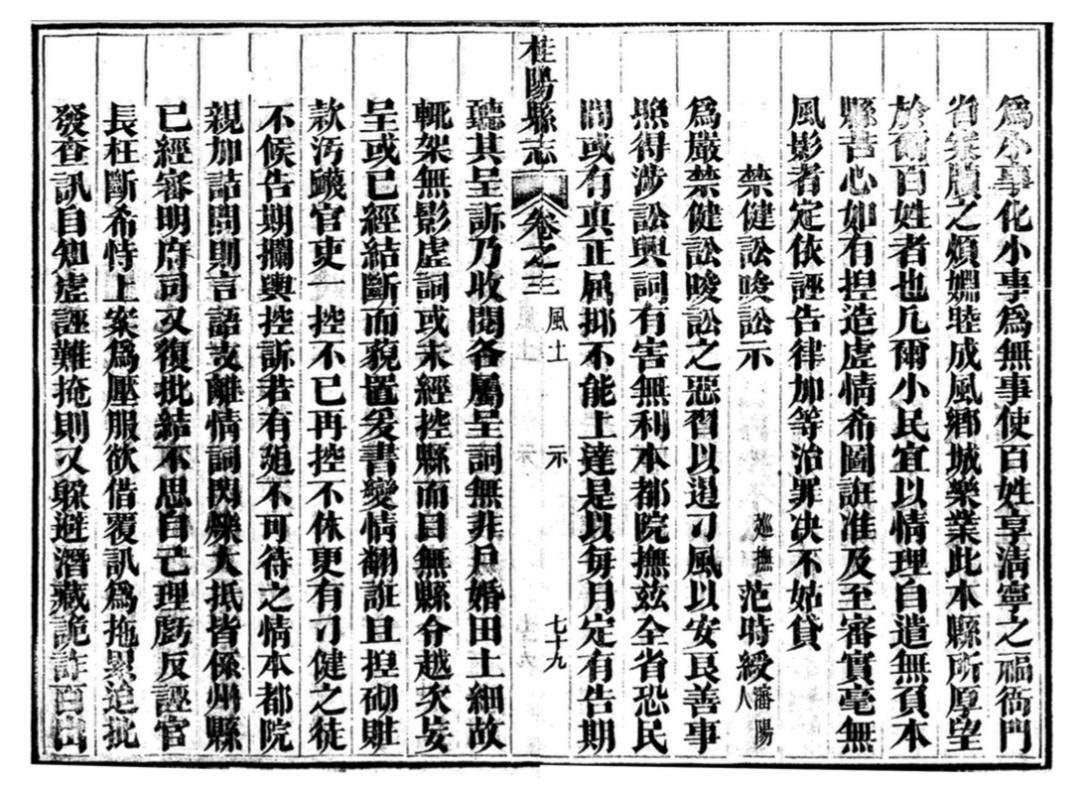 為小事化小事為無事使百姓享清寧之福衙門
省案牘之煩嫺睦成風鄉城樂業此本縣所厚望
於爾百姓者也凡爾小民宜以情理自遣無負本
縣苦心如有揑造虛情希圖誑准及至審實毫無
風影者定依誣告律加等治罪决不姑貸
禁健訟唆訟示 廵撫 范時綬 瀋陽人
為嚴禁健訟唆訟之惡習以遏刁風以安良善事
照得涉訟興詞有害無利本都院撫兹全省恐民
間或有真正屈抑不能上達是以每月定有告期
桂陽縣志 卷之三 風土 示 七十九
聽其呈訴乃收閱各屬呈詞無非戶婚田土細故
輒架無影虛詞或未經控縣而目無縣令越次妄
呈或已經結斷而藐置爰書變情翻誑且揑砌賍
款汚衊官吏一控不已再控不休更有刁健之徒
不候告期攔輿控訴若有廹不可待之情本都院
親加詰問則言語支離情詞閃爍大抵皆係州縣
已經審明府司又復批結不思自己理虧反誣官
長枉斷希恃上案為壓服欲借覆訊為拖累迨批
發查訊自知虛誣難掩則又躲避潛藏詭詐百出